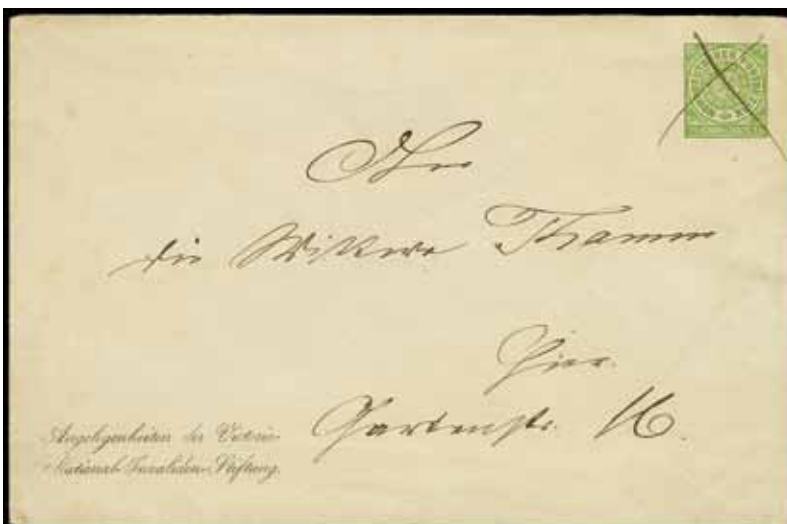 An
die Wittwe
hier.
Gartenstr. 16.
Angelegenheiten der Victoria-
National-Invaliden-Stiftung.